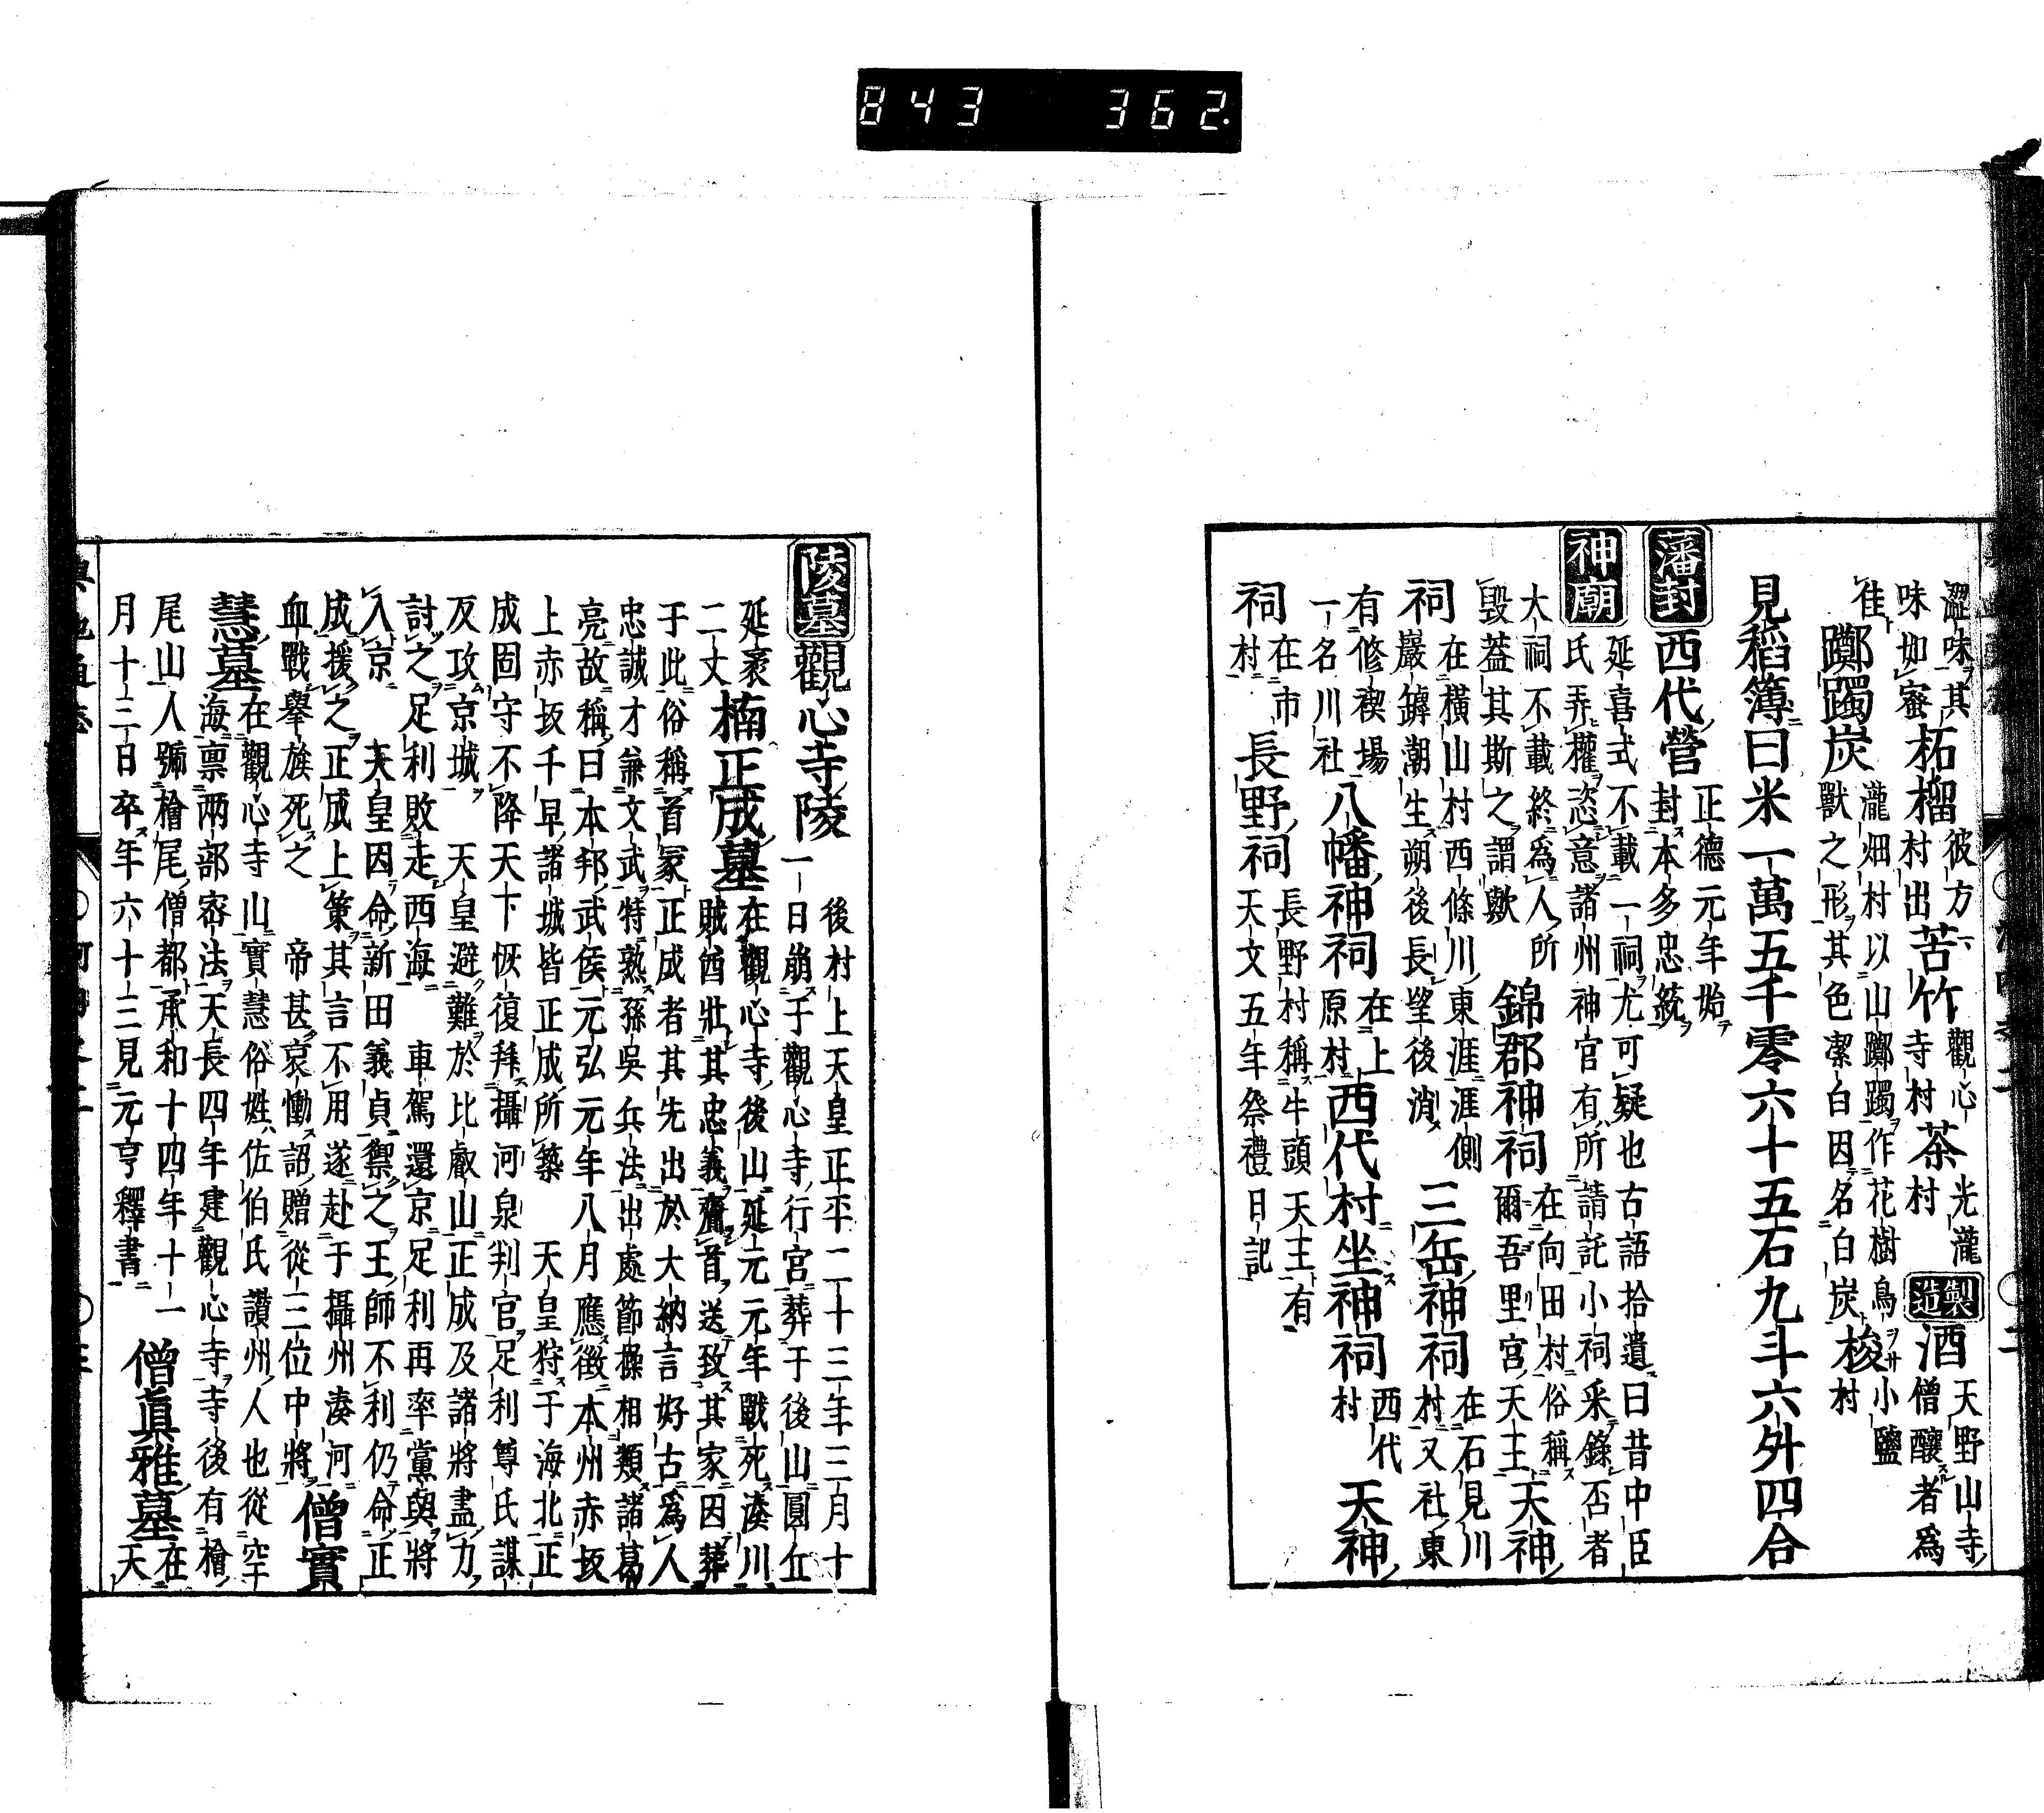 843 362
澀味其味如蜜柘榴彼方村出苦竹觀心寺村茶光瀧村製造酒天野山寺僧釀者爲
佳躑躅炭瀧畑村以山躑躅作花樹鳥獸之形其色潔白因名白炭梭小鹽村
見稻簿曰米一萬五千零六十五石九斗六外四合
藩封西代營正德元年始封本多忠統
神廟延喜式不載一祠尤可疑也古語拾遺曰昔中臣氏弄權恣意諸州神官有所請託小祠釆錄否者
大祠不載終爲人所毀蓋其斯之謂歟錦郡神祠在向田村俗稱爾吾里宮天王天神
祠在橫山村西條川東涯涯側巖罅潮生朔後長望後消三岳神祠在石見川村又社東
有修禊場一名川社八幡神祠在上原村西代村坐神祠西代村天神
祠在市村長野祠長野村稱牛頭天王有天文五年祭禮日記
陵墓觀心寺陵後村上天皇正平二十三年三月十一日崩于觀心寺行宮葬于後山圓丘
延袤二丈楠正成墓在觀心寺後山延元元年戰死湊川賊酋壯其忠義齎首送致其家因葬
于此俗稱首冢正成者其先出於大納言好古爲人
忠誠才兼文武特熟孫吳兵法出處節操相類諸葛
亮故稱曰本邦武侯元弘元年八月應徵本州赤坂
上赤坂千早諸城皆正成所築 天皇狩于海北正
成固守不降天下恢復拜攝河泉判官足利尊氏謀
反攻京城 天皇避難於比叡山正成及諸將盡力
討之足利敗走西海 車駕還京足利再率黨與將
入京 天皇因命新田義貞禦之王師不利仍命正
成援之正成上策其言不用遂赴于攝州湊河
血戰舉族死之 帝甚哀慟詔贈從三位中將僧實
慧墓在觀心寺山實慧俗姓佐伯氏讚州人也從空海稟兩部密法天長四年建觀心寺寺後有檜
尾山人號檜尾僧都承和十四年十一月十三日卒年六十三見元亨釋書僧眞雅墓在天